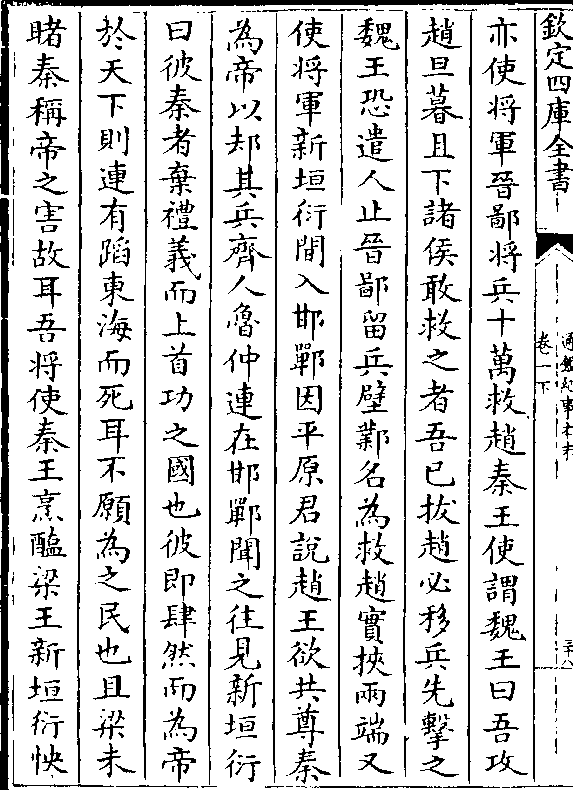 欽定四庫全書
通鑑紀事本末
卷一下
亦使將軍晉鄙將兵十萬救趙秦王使謂魏王曰吾攻
趙旦暮且下諸侯敢救之者吾已拔趙必移兵先擊之
魏王恐遣人止晉鄙留兵壁鄴名為救趙實挾兩端又
使將軍新垣衍間入邯鄲因平原君說趙王欲共尊秦
為帝以却其兵齊人魯仲連在邯鄲聞之往見新垣衍
曰彼秦者棄禮義而上首功之國也彼即肆然而為帝
於天下則連有蹈東海而死耳不願為之民也且梁未
睹秦稱帝之害故耳吾將使秦王烹醢梁王新垣衍怏